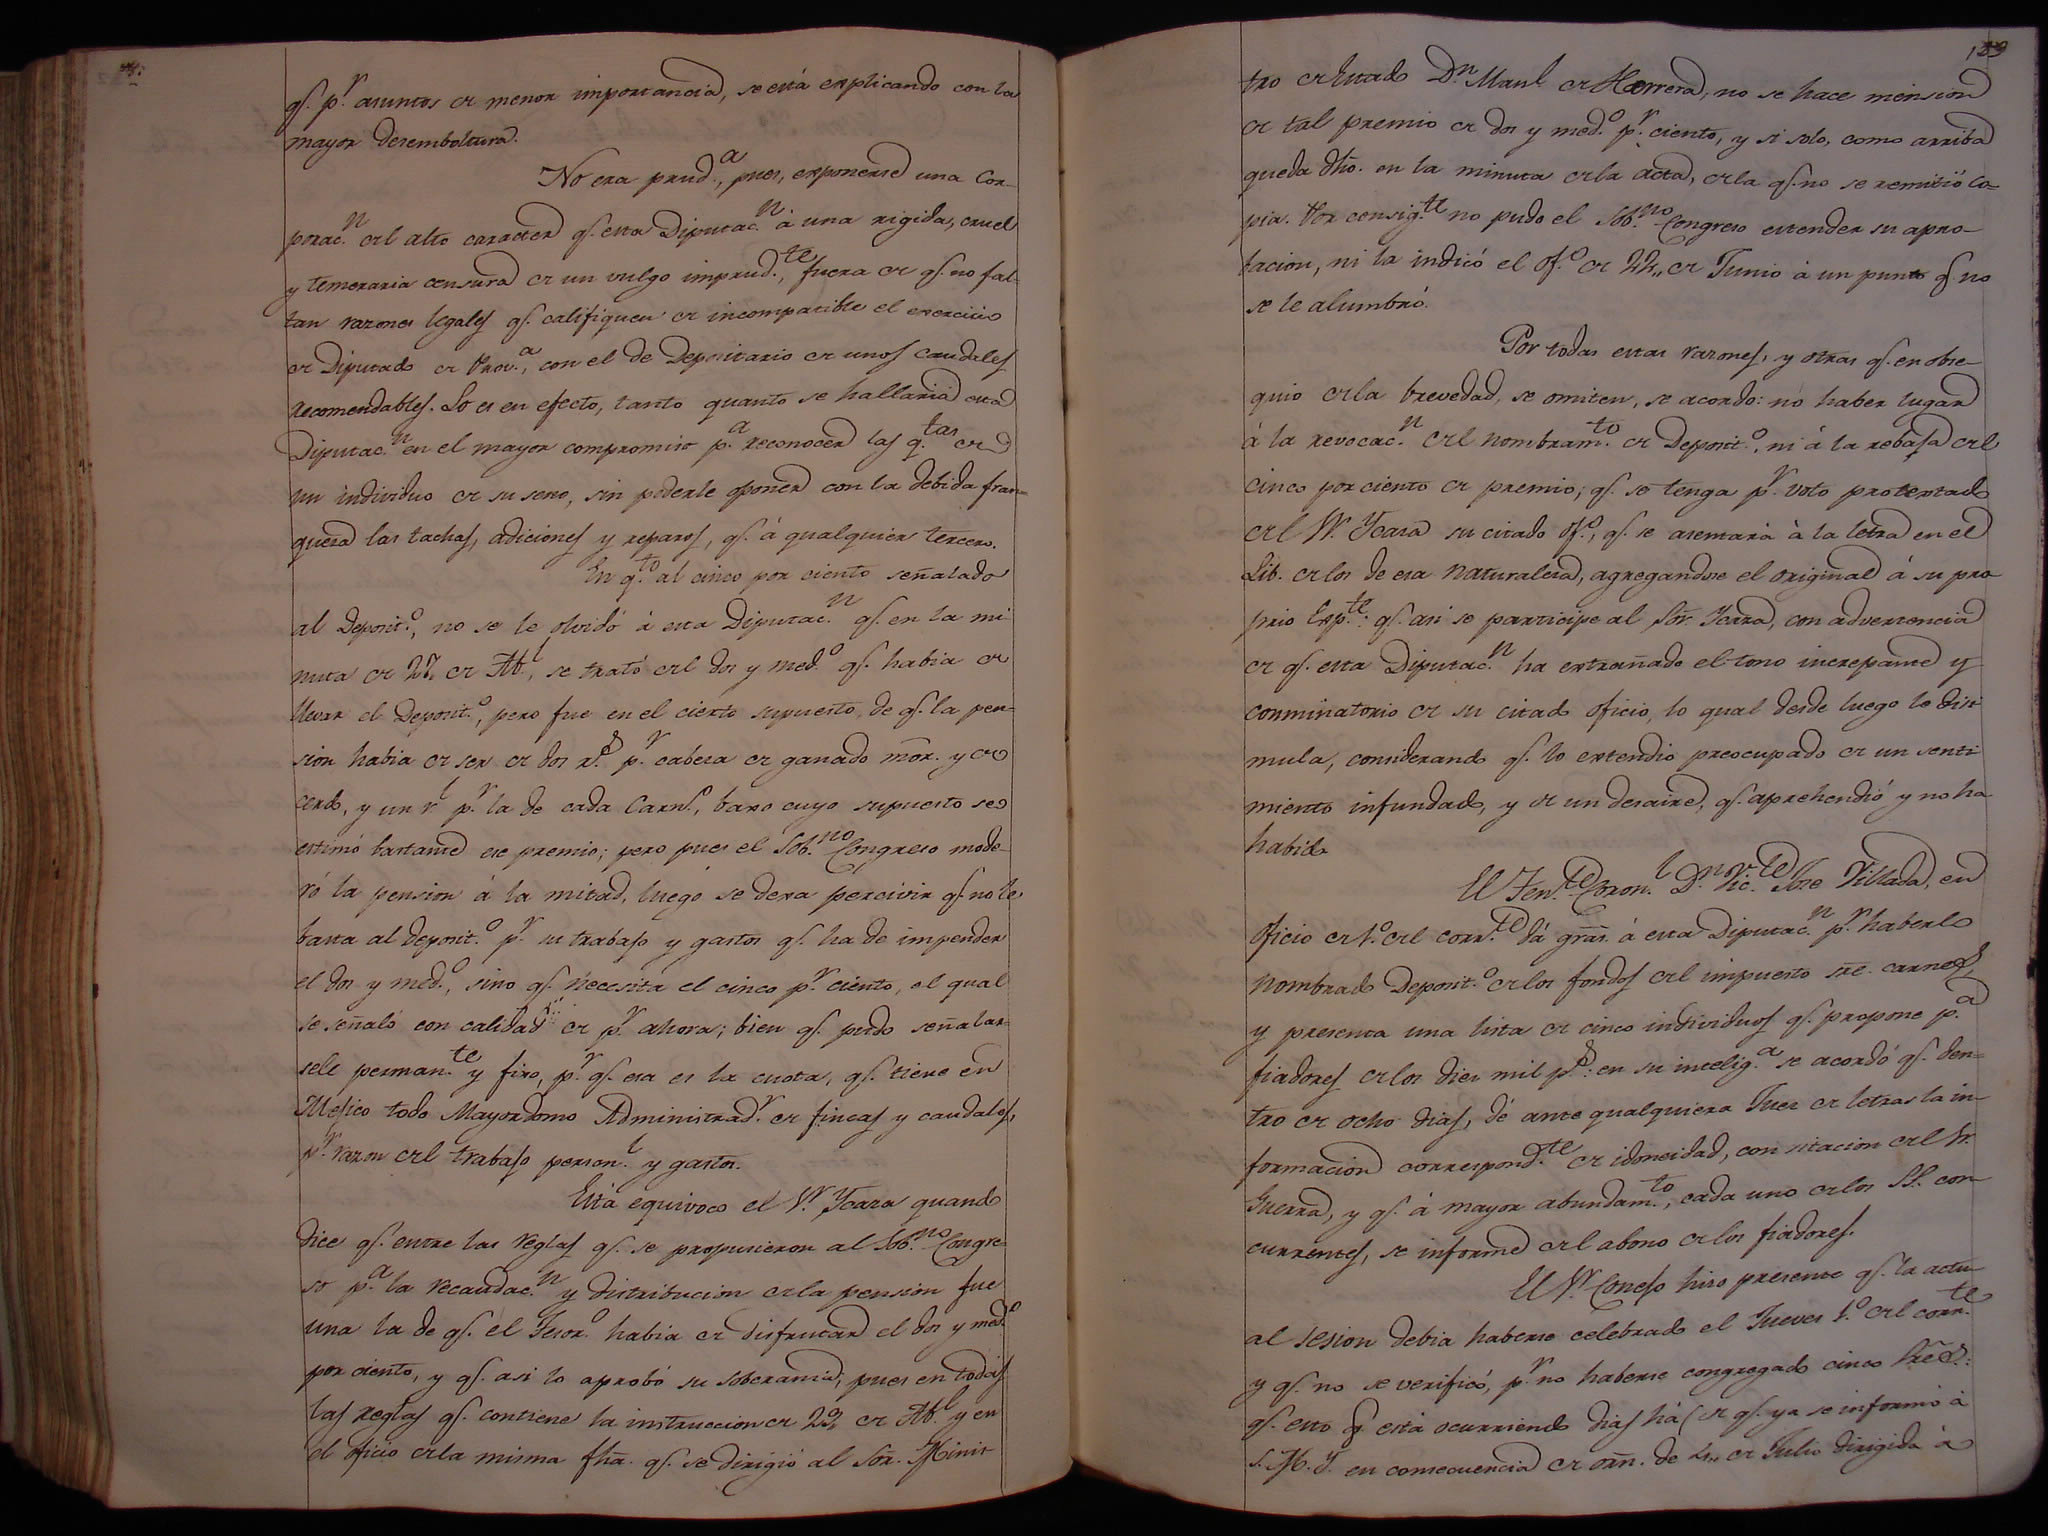 qs. p.r asuntos de menor importancia, se está explicando con la
mayor desemboltura.
No era prud.a, pues, exponerse una Cor-
porac.n del alto caracter qe. esta Diputac.n à una rigida, cruel
y temeraria censura de un vulgo imprud.te, fuera de qe. no fal-
tan razones legales qe. califiquen de incompatible el exercicio
de Diputado de Prov.a, con el de Depositario de unos caudales
recomendables. Lo es en efecto, tanto quanto se hallaria esta
Diputac.n en el mayor compromiso p.a reconocer las q.tas de
un individuo de su seno, sin poderle oponer con la debida fran-
queza las tachas, adiciones y reparos, qe. á qualquier tercero.
En q.to al cinco por ciento señalado
al Deposit.o, no se le olvidó á esta Diputac.n qe. en la mi
nuta de 27, de Ab.l, se trató del dos y med.o qe. habia de
llevar el Deposit.o, pero fue en el cierto supuesto, de qe. la pen-
sion habia de ser de dos r.s p.r cabeza de ganado mõr. y de
cerdo, y un r.l p.r la de cada Carn.o, baxo cuyo supuesto se
estimó bastante ese premio; pero pues el Sob.no Congreso mode-
ró la pension á la mitad, luego se dexa percivir qe. no le
basta al deposit.o p.r su trabajo y gastos qe. ha de impender
el dos y med.o, sino qe. necesita el cinco p.r ciento, el qual
se señaló con calidad de p.r ahora; bien qe. pudo señalar-
sele perman.te y fixo, p.r qe. esa es la cuota, qe. tiene en
Mejico todo Mayordomo Administrad.r de fincas y caudales,
p.r razon del trabajo person.l y gastos.
Está equivoco el S.r Ycaza quando
dice qe. entre las reglas qe. se propusieron al Sob.no Congre-
so p.a la recaudac.n y distribucion de la pension fue
una la de qe. el Tesor.o habia de disfrutar el dos y med.o
por ciento, y qe. asi lo aprobó su soberania; pues en todas
las reglas qe. contiene la instruccion de 29, de Ab.l y en
el oficio de la misma fha. qe. se dirigió al Sõr. Minis-
129
tro de Estado D.n Man.l de Herrera, no se hace mension
de tal premio de dos y med.o p.r ciento, y si solo, como arriba
queda dho. en la minuta de la acta, de la qe. no se remitió co-
pia. Por consig.te no pudo el Sob.no Congreso estender su apro-
bacion, ni la indicó el of.o de 22,, de Junio á un punto qe. no
se le alumbró.
Por todas estas razones, y otras qe. en obse-
quio de la brevedad, se omiten, se acordo: no haber lugar
á la revocac.n del nombram.to de Deposit.o, ni á la rebaja del
cinco por ciento de premio; qe. se tenga p.r voto protextado
del S.r Ycaza su citado of.o, qe. se asentará à la letra en el
Lib. de los de esa naturaleza, agregandose el original á su pro-
prio Exp.te: qe. asi se participe al Sõr Ycaza, con advertencia
de qe. esta Diputac.n ha extrañado el tono increpante y
conminatorio de su citado oficio, lo qual desde luego le disi
mula, considerando qe. lo extendio preocupado de un senti
miento infundado, y de un desaire, qe. aprehendió y no ha
habido
El Ten.te Coron.l D.n Vic.te Jose Villada, en
Oficio de 1.o del corr.te dá grãs. á esta Diputac.n p.r haberlo
nombrado Deposit.o de los fondos del impuesto sre. carnes,
y presenta una lista de cinco individuos qe. propone p.a
fiadores de los diez mil p.s: en su intelig.a se acordó qe. den-
tro de ocho dias, dé ante qualquiera Juez de letras la in-
formacion correspond.te de idoneidad, con sitacion del Sr.
Guerra, y qe. á mayor abundam.to, cada uno de los SS. con-
currentes, se informe del abono de los fiadores.
El S.r Conejo hizo presente qe. la actu-
al sesion debia haberse celebrado el Jueves 1.o del corr.te
y qe. no se verificó, p.r no haberse congregado cinco Sres.:
qe. esto está ocurriendo dias há (de qe. ya se informó à
S. M. Y. en consecuencia de orñ. de 4,, de Julio dirigida á